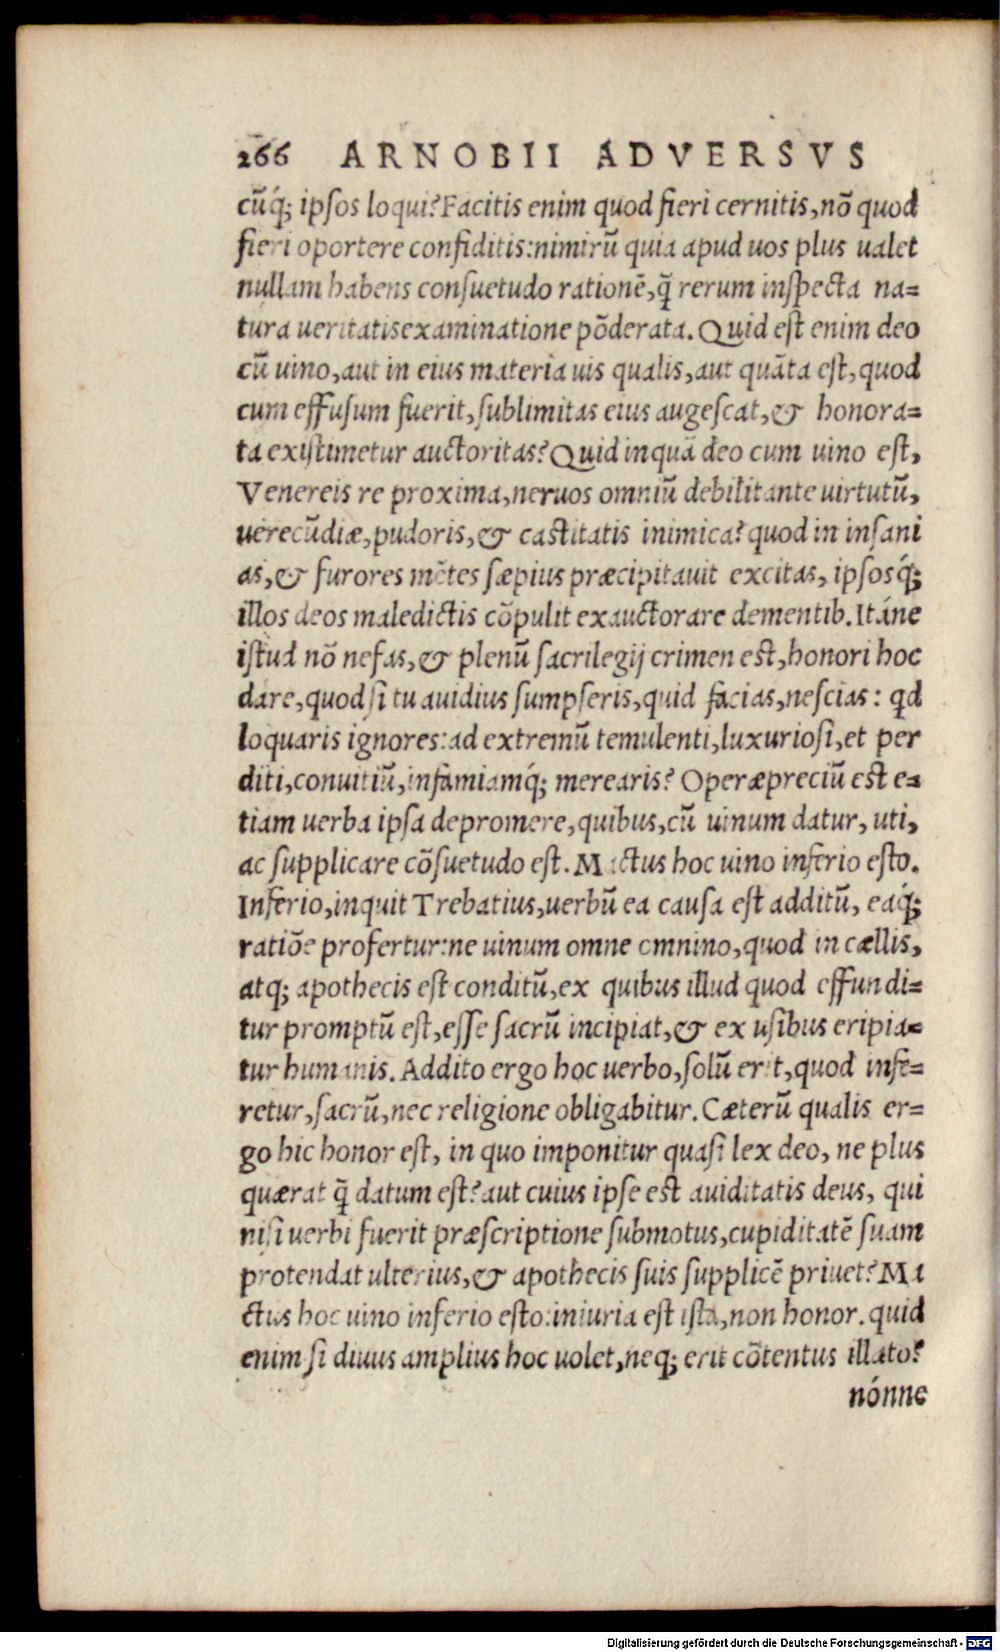 266 ARNOBII ADVERSVS
cūq́; ipſos loqui? Facitis enim quod fieri cernitis, nō quod
fieri oportere confiditis: nimirū quia apud uos plus ualet
nullam habens conſuetudo rationē, q̄ rerum inſpecta na=
tura ueritatis examinatione pōderata. Quid eſt enim deo
cū uino, aut in eius materia uis qualis, aut quāta eſt, quod
cum effuſum fuerit, ſublimitas eius augeſcat, & honora=
ta exiſtimetur auctoritas? Quid inquā deo cum uino eſt,
Venereis re proxima, neruos omniū debilitante uirtutū,
uerecūdiæ, pudoris, & caſtitatis inimica? quod in inſani
as, & furores mētes ſæpius præcipitauit excitas, ipſosq́;
illos deos maledictis cōpulit exauctorare dementib. Itáne
iſtud nō nefas, & plenū ſacrilegij crimen eſt, honori hoc
dare, quod ſi tu auidius ſumpſeris, quid facias, neſcias: qd
loquaris ignores: ad extremū temulenti, luxurioſi, et per
diti, conuitiū, infamiamq́; merearis? Operæpreciū eſt e=
tiam uerba ipſa depromere, quibus, cū uinum datur, uti,
ac ſupplicare cōſuetudo eſt. Mactus hoc uino inferio eſto.
Inferio, inquit Trebatius, uerbū ea cauſa eſt additū, eaq́;
ratiōe profertur: ne uinum omne omnino, quod in cællis,
atq; apothecis eſt conditū, ex quibus illud quod effundi=
tur promptū eſt, eſſe ſacrū incipiat, & ex uſibus eripia=
tur humanis. Addito ergo hoc uerbo, ſolū erit, quod infe=
retur, ſacrū, nec religione obligabitur. Cæterū qualis er=
go hic honor eſt, in quo imponitur quaſi lex deo, ne plus
quærat q̄ datum eſt? aut cuius ipſe eſt auiditatis deus, qui
niſi uerbi fuerit præſcriptione ſubmotus, cupiditatē ſuam
protendat ulterius, & apothecis ſuis ſupplicē priuet? Ma
ctus hoc uino inferio eſto: iniuria eſt iſta, non honor. quid
enim ſi diuus amplius hoc uolet, neq; erit cōtentus illato?
nónne
Digitalisierung gefördert durch die Deutsche Forschungsgemeinschaft - DFG